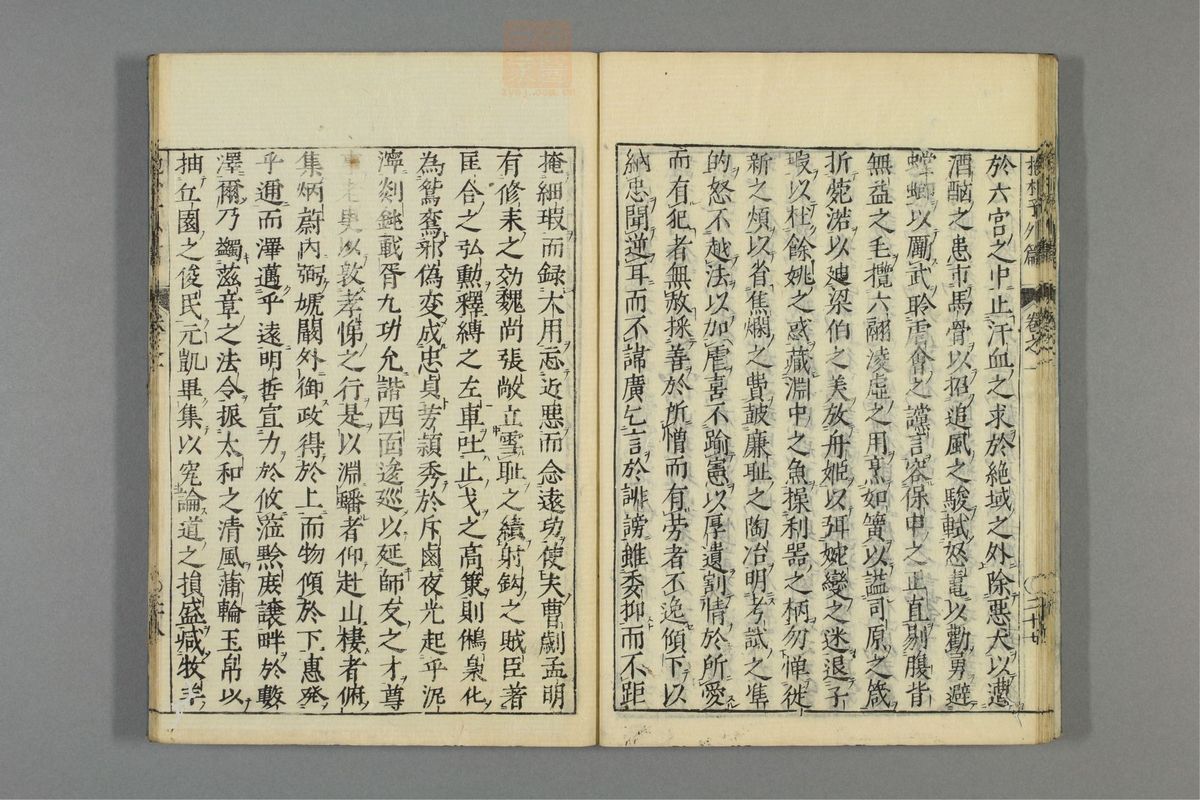 抱朴子外篇　卷之一
於六宮之中止汗血之求於絶域之外除惡犬以遭
酒酤之患市馬骨以招追風之駿軾怒鼃以勸勇避
螳蜋以厲武聆虐會之讜言容保申之正直剔腹背
無益之毛攬六翮淩虛之用烹如簧以謐司原之箴
折菀渃以逺梁伯之美放舟姬以弭婉孌之迷退子
瑕以杜餘姚之惑藏淵中之魚操利器之柄勿憚徙
新之煩以省焦爛之費鼓廉耻之陶冶明考試之準
的怒不越法以加虐喜不踰憲以厚遺割情於所愛
而有犯者無赦採善於所憎而有芳者不逸傾下以
納忠聞逆耳而不諱廣乞言於誹謗雖委抑而不距
掩細瑕而録大用忘近惡而念遠功使夫曹劌孟明
有修來之効魏尚張敞立雪耻之績射鈎之賊臣著
匡合之弘勲釋縛之左車吐止戈之高策則鵂梟化
為鴛鸞邪偽変成忠貞芳頴秀於斥鹵夜光起乎泥
濘剡鋭載胥九功允諧西面逡巡以延師友之才尊
事老叟以敦孝悌之行是以淵蟠者仰赴山棲者俯
集炳蔚内弼虓闞外御政得於上而物傾於下惠發
乎邇而澤邁乎遠明哲宣力於攸蒞黔庶讓畔於藪
澤爾乃蠲滋章之法令振太和之清風蒲輪玉帛以
抽丘園之俊民元凱畢集以究論道之損盛減牧羊